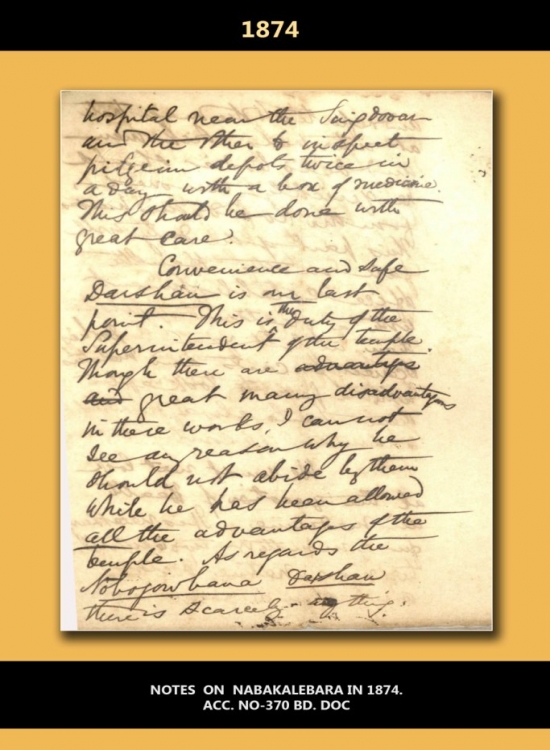 1874
hospital near the Singdwar
and the other to inspect
pilgrim depots twice in
a day with a box of medicine.
This should be done with
great care.
Convenience and safe
Darshan is our last
point. This is the duty of the
Superintendent of the temple.
Though there are advantages
and great many disadvantages
in these works, I cannot
see any reason why he
should not abide by them
while he has been allowed
all the advantages of the
temple. As regards the
Nobojowbana Darshan
there is scarcely anything.
NOTES ON NABAKALEBARA IN 1874.
ACC. NO-370 BD. DOC